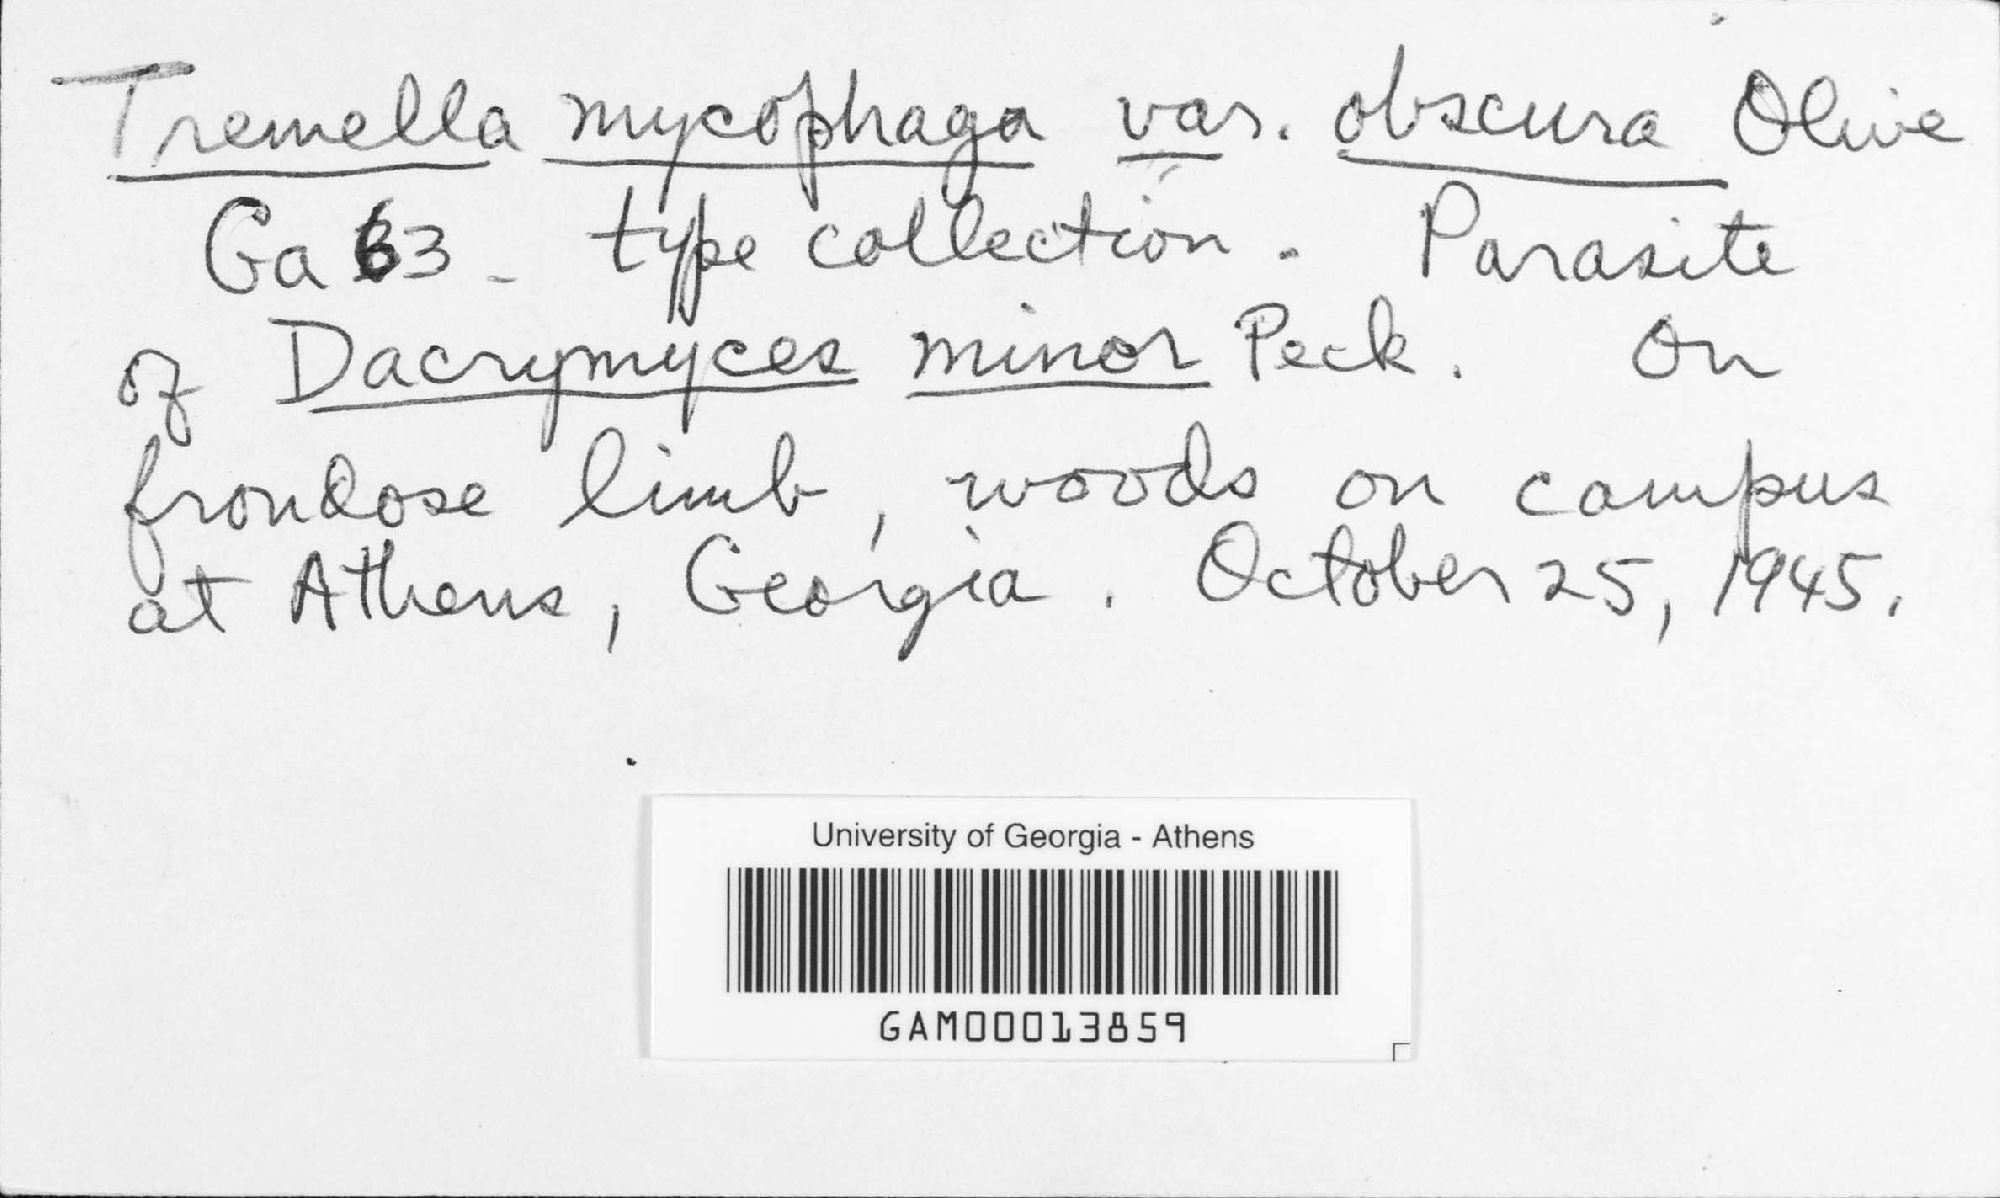 Tremella mycophaga var. obscura Olive
Ga 63 - type collection. Parasite
of Dacrymyces minor Peck. On
frondose limb, woods on campus
at Athens, Georgia. October 25, 1945.
University of Georgia - Athens
GAM00013859